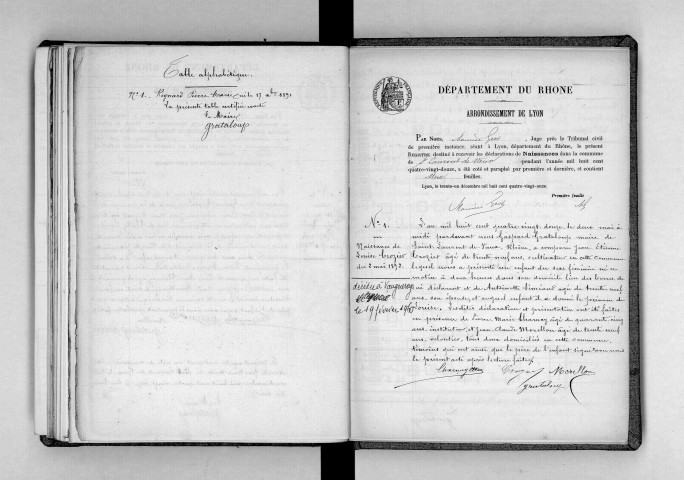 Table alphabétique.
N° 1. Pierre Marie né le 27 1891
La présente table certifiée
Le Maire
Grataloup
DÉPARTEMENT DU RHONE
ARRONDISSEMENT DE LYON
PAR NOUS, Maurice Juge près le Tribunal civil
de première instance, séant à Lyon, département du Rhône, le présent
REGISTRE destiné à recevoir les déclarations de Naissances dans la commune
de St Laurent de Vaux pendant l'année mil huit cent
quatre-vingt-douze, a été coté et paraphé par première et dernière, et contient
feuilles.
Lyon, le trente-un décembre mil huit cent quatre-vingt-onze.
Première feuille
Maurice
N° 1.
Naissance de
Louise Crozier
du 2 mai 1892.
décédée à
le 19 février
L'an mil huit cent quatre vingt douze, le deux mai à
midi pardevant nous Gaspard Grataloup maire de
Saint Laurent de Vaux, Rhône, a comparu Jean Etienne
Crozier âgé de trente neuf ans, cultivateur en cette commune
lequel nous a présenté un enfant du sexe féminin né ce
matin à deux heures dans son domicile lieu des
lui déclarant et de Antoinette âgée de trente neuf
ans, son épouse, et auquel enfant il a donné le prénom de
Louise. Lesdites déclaration et présentation ont été faites
en présence de Pierre Marie âgé de quarante cinq
ans, instituteur et Jean Claude Morellon âgé de trente neuf
ans, tous deux domiciliés en cette commune,
témoins qui ont ainsi que le père de l'enfant signé avec nous
le présent acte après lecture faite.
Crozier Morellon
Grataloup